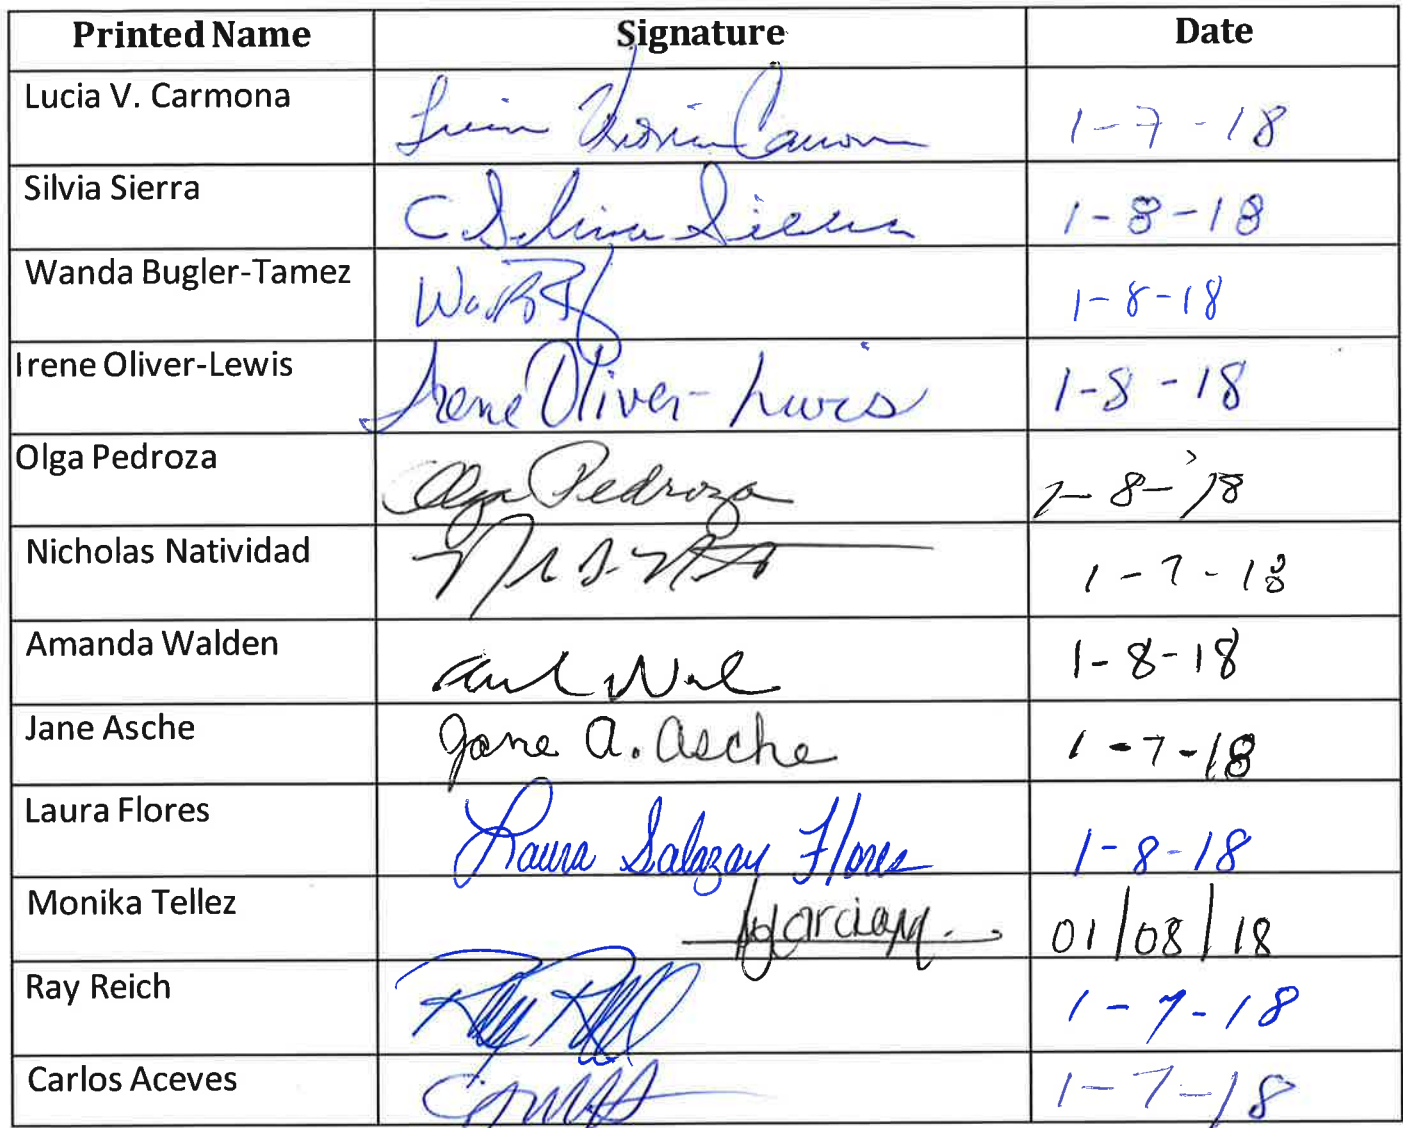 Printed Name Signature Date
Lucia V. Carmona 1-7-18
Silvia Sierra Silvia Sierra 1-8-18
Wanda Bugler-Tamez 1-8-18
Irene Oliver-Lewis Irene Oliver-Lewis 1-8-18
Olga Pedroza Olga Pedroza 1-8-18
Nicholas Natividad 1-7-18
Amanda Walden 1-8-18
Jane Asche Jane A. Asche 1-7-18
Laura Flores Laura Salazar Flores 1-8-18
Monika Tellez 01/08/18
Ray Reich 1-7-18
Carlos Aceves 1-7-18